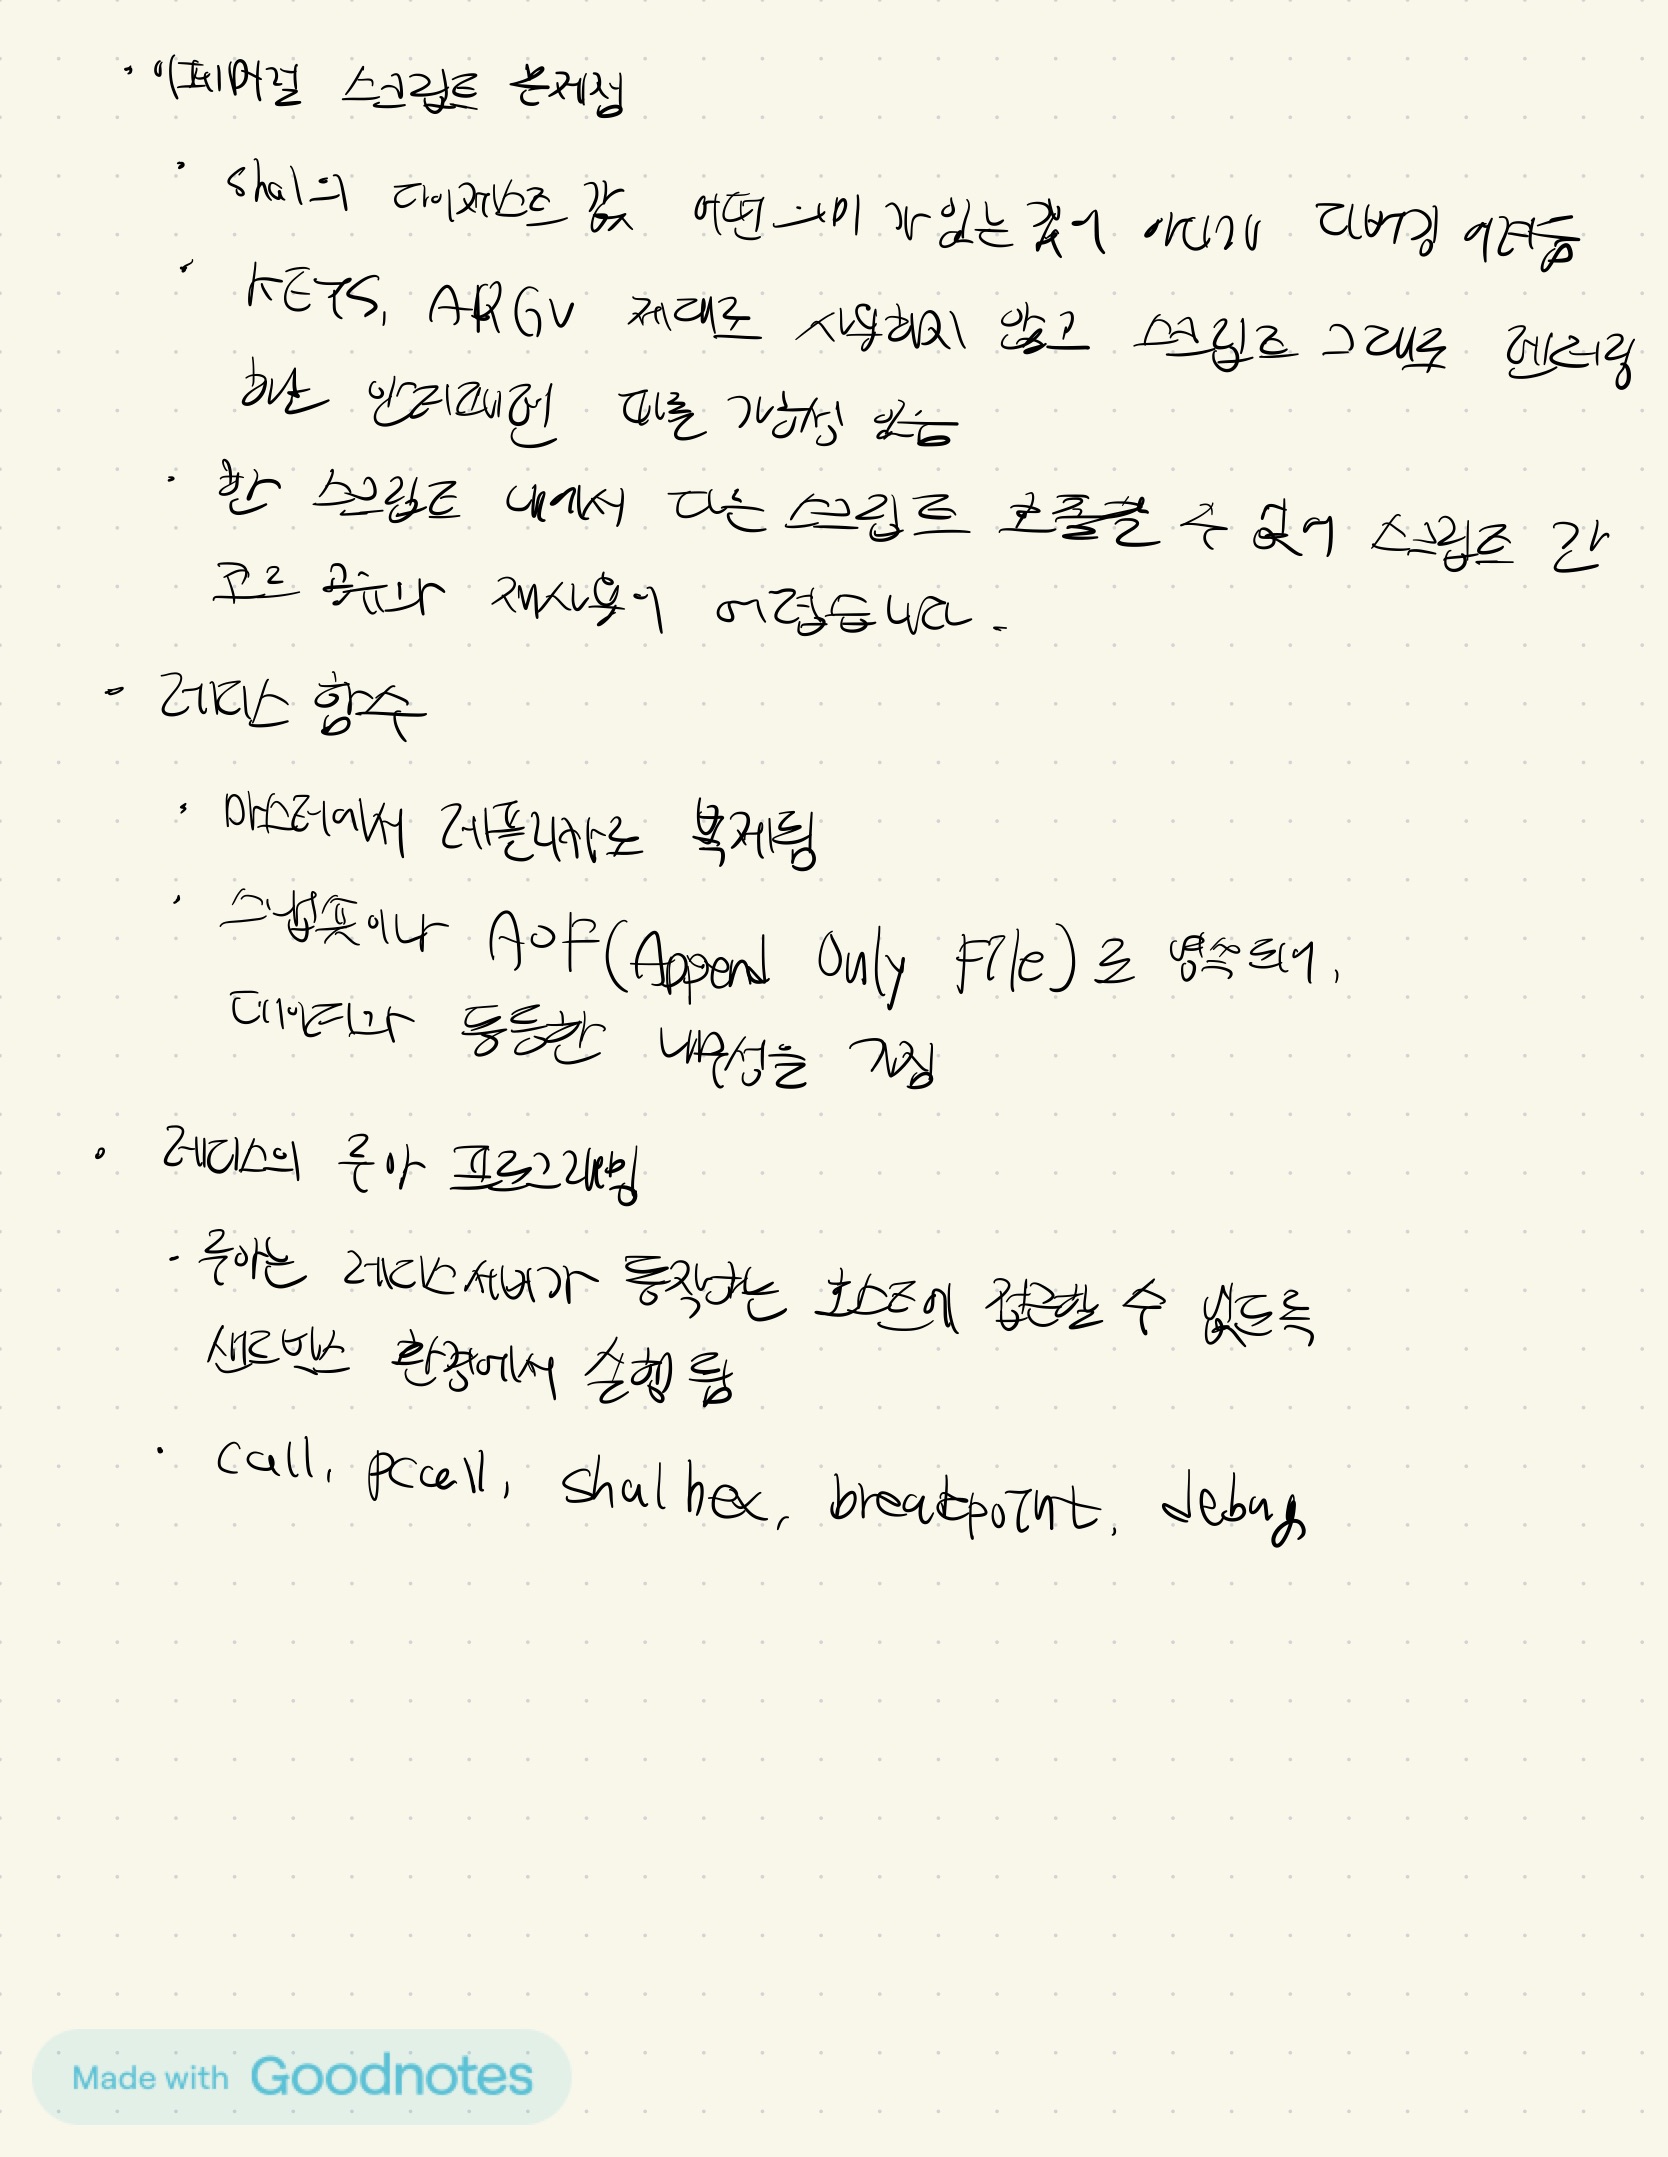 · 이페머럴 스크립트 문제점
· sha1의 다이제스트 값 어떤 의미가 있는 값이 아니라 디버깅 어려움
· KEYS, ARGV 제대로 사용하지 않고 스크립트 그대로 렌더링
하는 안티패턴 따를 가능성 있음
· 한 스크립트 내에서 다른 스크립트 호출할 수 없어 스크립트 간
코드 공유와 재사용이 어렵습니다.
- 레디스 함수
· 마스터에서 레플리카로 복제됨
· 스냅숏이나 AOF(Append Only File)로 영속되어,
데이터와 동등한 내구성을 가짐
· 레디스의 루아 프로그래밍
- 루아는 레디스 서버가 동작하는 호스트에 접근할 수 없도록
샌드박스 환경에서 실행됨
· call, pcall, sha1hex, breakpoint, debug
Made with Goodnotes